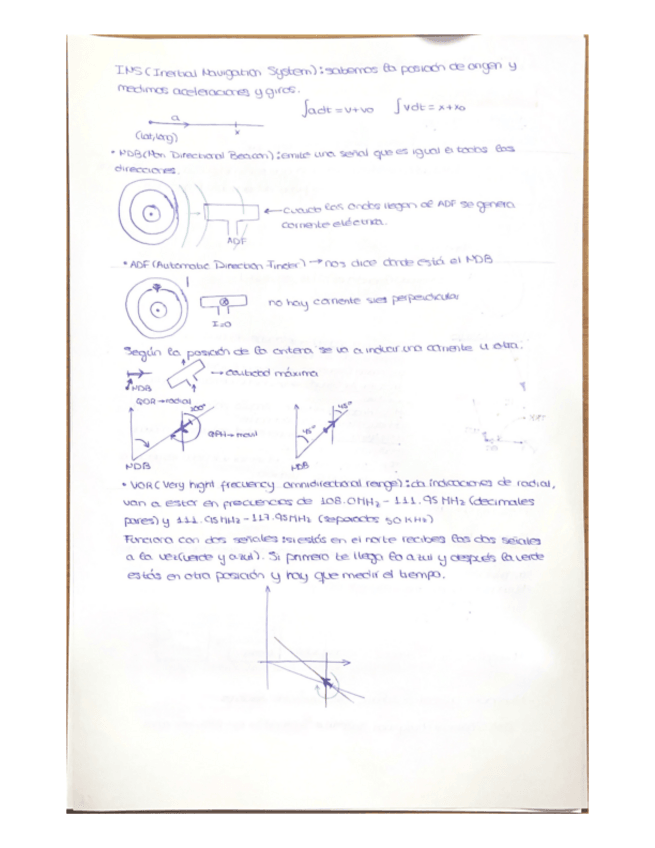 INS (Inertial Navigation System): sabemos la posición de origen y
medimos aceleraciones y giros.
∫adt = v+v₀ ∫vdt = x+x₀
a
(lat, long) x
• NDB (Non Directional Beacon): emite una señal que es igual a todas las
direcciones.
← cuando las ondas llegan al ADF se genera
corriente eléctrica.
ADF
• ADF (Automatic Direction Finder) → nos dice dónde está el NDB
no hay corriente si es perpendicular
I=0
Según la posición de la antena se va a inducir una corriente u otra.
→ cantidad máxima
NDB
QDR → radial
200°
45°
45°
NDB
NDB
• VOR (Very hight frecuency omnidirectional range): da indicaciones de radial,
van a estar en frecuencias de 108.0MHz - 111.95 MHz (decimales
pares) y 111.95MHz - 117.95MHz (separados 50 KHz)
Funciona con dos señales: si estás en el norte recibes las dos señales
a la vez (verde y azul). Si primero te llega la azul y después la verde
estás en otra posición y hay que medir el tiempo.